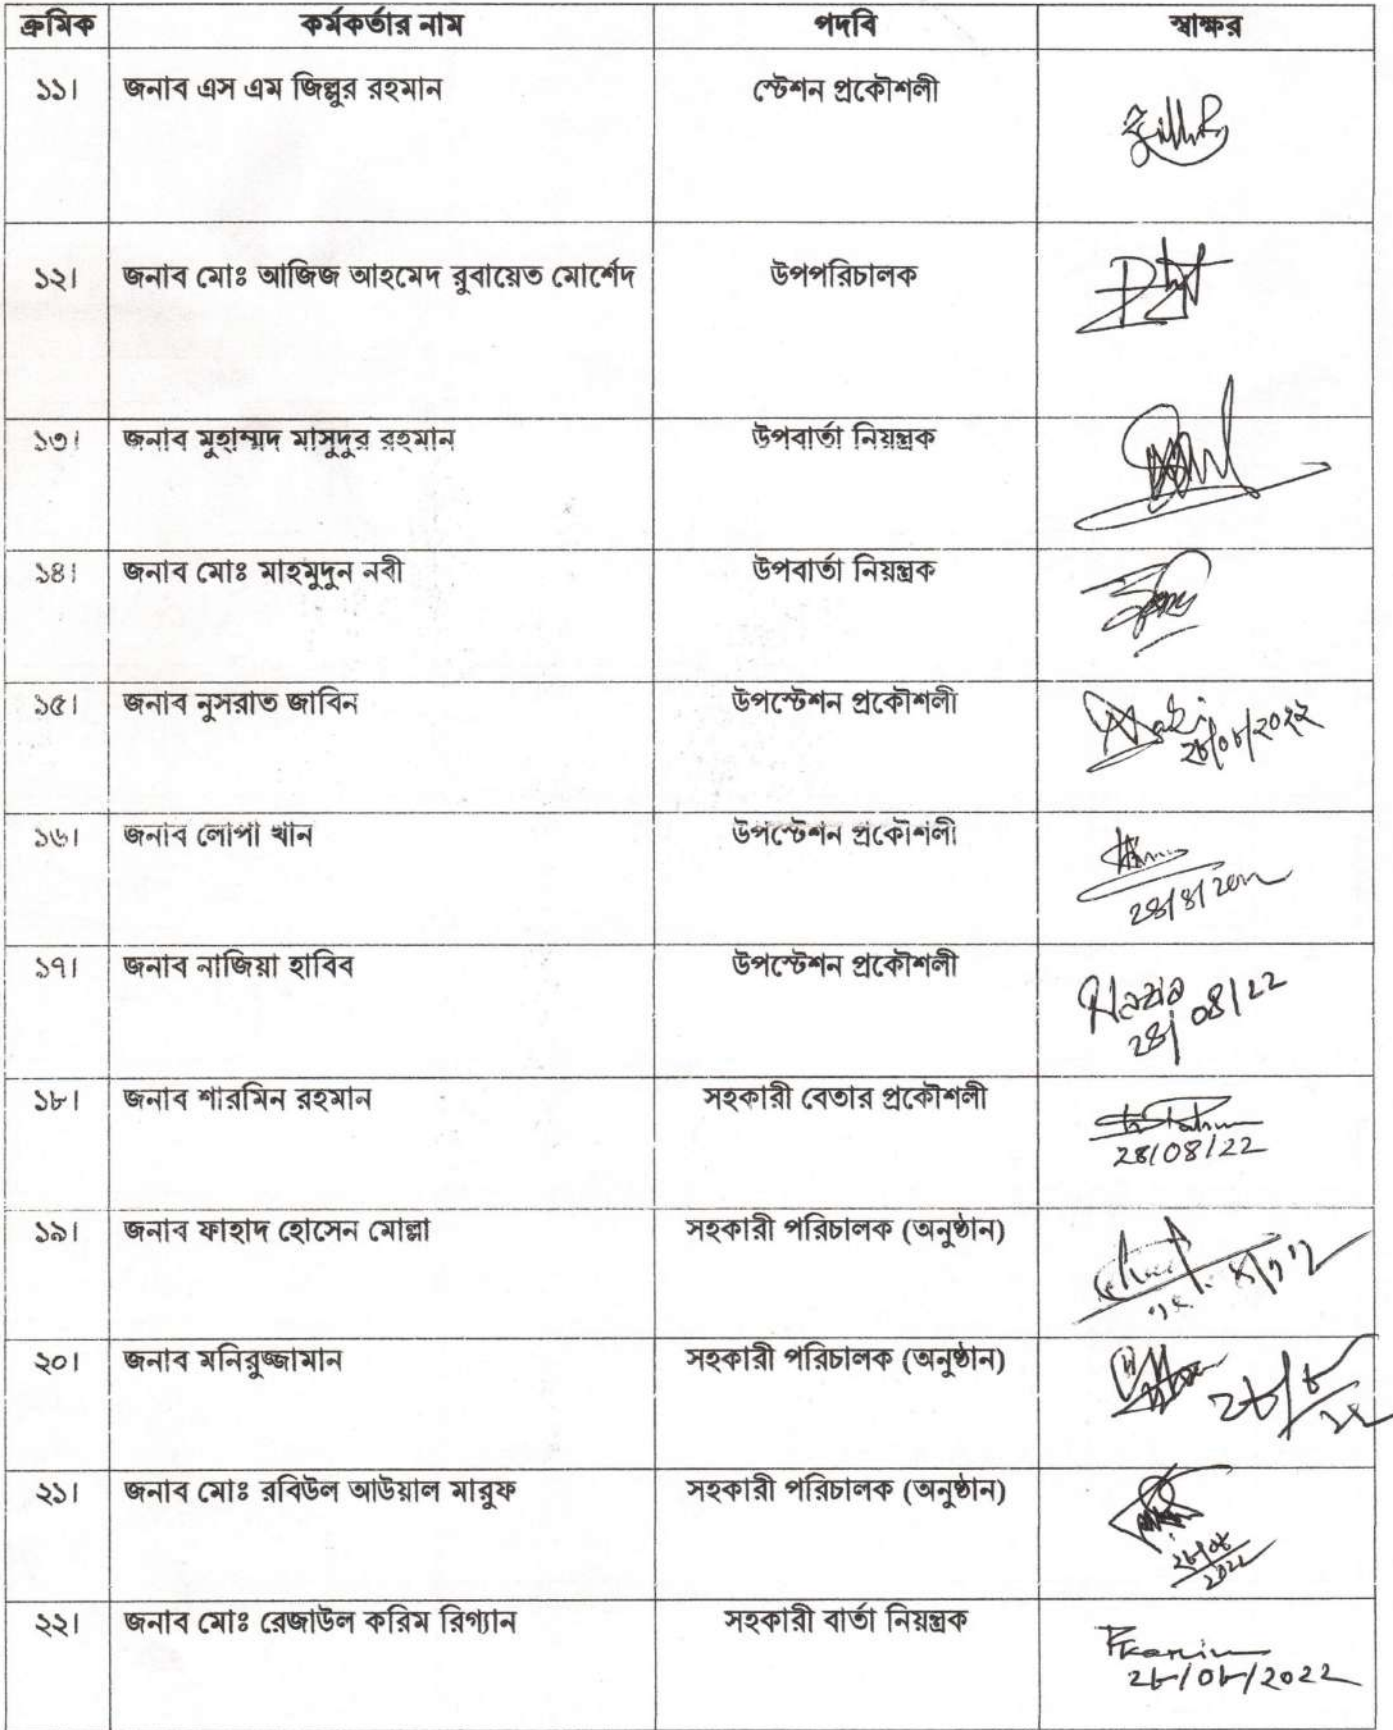 ক্রমিক কর্মকর্তার নাম পদবি স্বাক্ষর
১১। জনাব এস এম জিল্লুর রহমান স্টেশন প্রকৌশলী
১২। জনাব মোঃ আজিজ আহমেদ রুবায়েত মোর্শেদ উপপরিচালক
১৩। জনাব মুহাম্মদ মাসুদুর রহমান উপবার্তা নিয়ন্ত্রক
১৪। জনাব মোঃ মাহমুদুন নবী উপবার্তা নিয়ন্ত্রক
১৫। জনাব নুসরাত জাবিন উপস্টেশন প্রকৌশলী
২৮/০৮/২০২২
১৬। জনাব লোপা খান উপস্টেশন প্রকৌশলী
28/8/2022
১৭। জনাব নাজিয়া হাবিব উপস্টেশন প্রকৌশলী
Nazia
28/08/22
১৮। জনাব শারমিন রহমান সহকারী বেতার প্রকৌশলী
28/08/22
১৯। জনাব ফাহাদ হোসেন মোল্লা সহকারী পরিচালক (অনুষ্ঠান)
২০। জনাব মনিরুজ্জামান সহকারী পরিচালক (অনুষ্ঠান)
২৮/৮/২২
২১। জনাব মোঃ রবিউল আউয়াল মারুফ সহকারী পরিচালক (অনুষ্ঠান)
২৮/০৮
২০২২
২২। জনাব মোঃ রেজাউল করিম রিগ্যান সহকারী বার্তা নিয়ন্ত্রক
Rkarim
২৮/০৮/২০২২